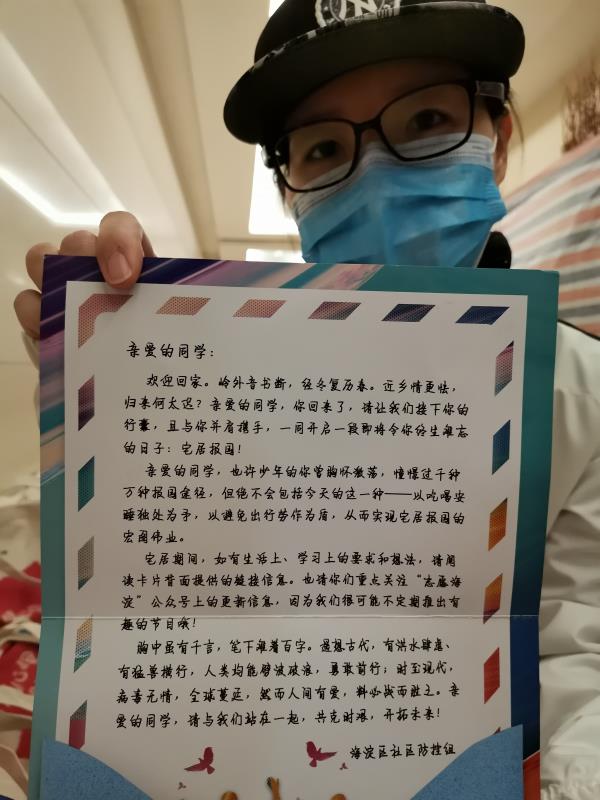 亲爱的同学：
欢迎回家。岭外音书断，经冬复历春。近乡情更怯，
归来何太迟？亲爱的同学，你回来了，请让我们接下你的
行囊，且与你并肩携手，一同开启一段即将令你终生难忘
的日子：宅居报国！
亲爱的同学，也许少年的你曾胸怀激荡，憧憬过千种
万种报国途径，但绝不会包括今天的这一种——以吃喝安
睡独处为矛，以避免出行劳作为盾，从而实现宅居报国的
宏图伟业。
宅居期间，如有生活上、学习上的要求和想法，请阅
读卡片背面提供的链接信息。也请你们重点关注“志愿海
淀”公众号上的更新信息，因为我们很可能不定期推出有
趣的节目哦！
胸中虽有千言，笔下难着百字。遥想古代，有洪水肆虐、
有猛兽横行，人类均能劈波破浪，勇敢前行；时至现代，
病毒无情，全球蔓延，然而人间有爱，料必战而胜之。亲
爱的同学，请与我们站在一起，共克时艰，开拓未来！
海淀区社区防控组